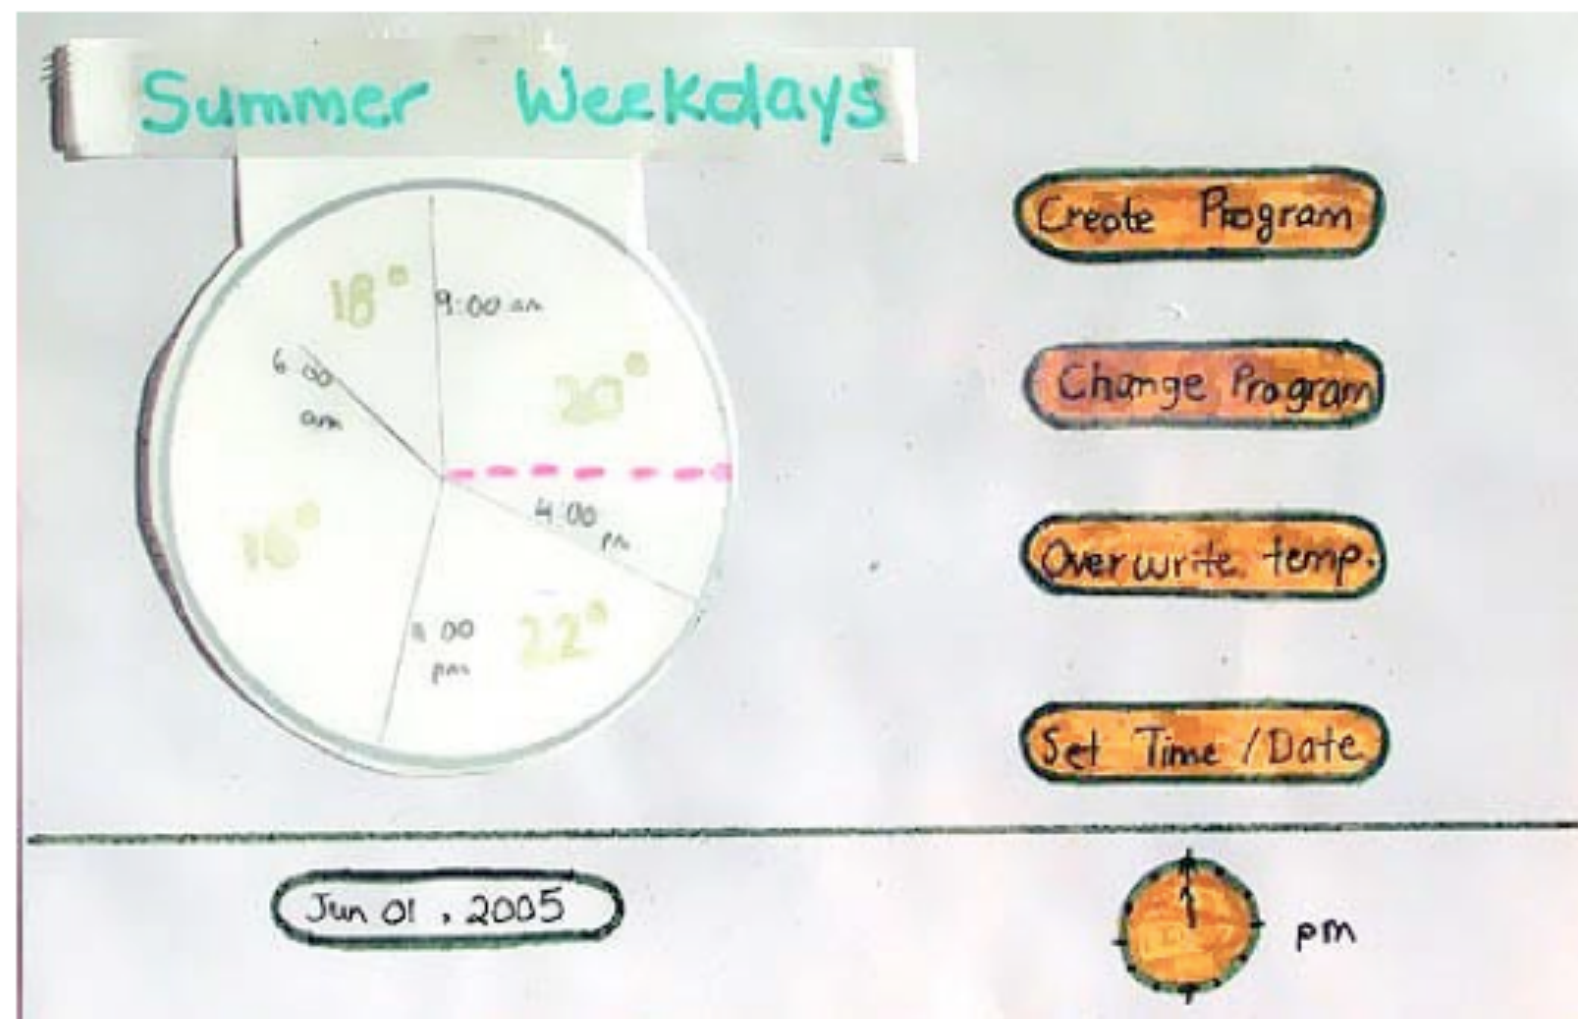 Summer Weekdays
18°
9:00 am
6:00
am
20°
4:00
pm
16°
22°
:00
pm
Create Program
Change Program
Overwrite temp.
Set Time / Date
Jun 01, 2005
pm